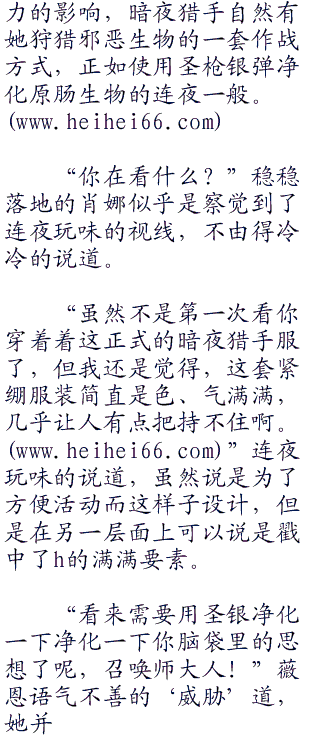 力的影响，暗夜猎手自然有
她狩猎邪恶生物的一套作战
方式，正如使用圣枪银弹净
化原肠生物的连夜一般。
(www.heihei66.com)
“你在看什么？”稳稳
落地的肖娜似乎是察觉到了
连夜玩味的视线，不由得冷
冷的说道。
“虽然不是第一次看你
穿着着这正式的暗夜猎手服
了，但我还是觉得，这套紧
绷服装简直是色、气满满，
几乎让人有点把持不住啊。
(www.heihei66.com)”连夜
玩味的说道，虽然说是为了
方便活动而这样子设计，但
是在另一层面上可以说是戳
中了h的满满要素。
“看来需要用圣银净化
一下净化一下你脑袋里的思
想了呢，召唤师大人！”薇
恩语气不善的‘威胁’道，
她并